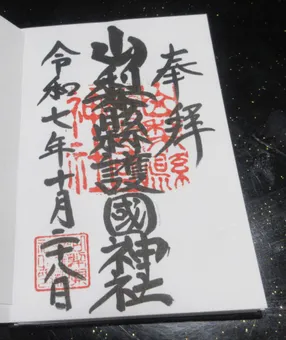 奉拜
山梨縣護國神社
令和七年十月二十八日